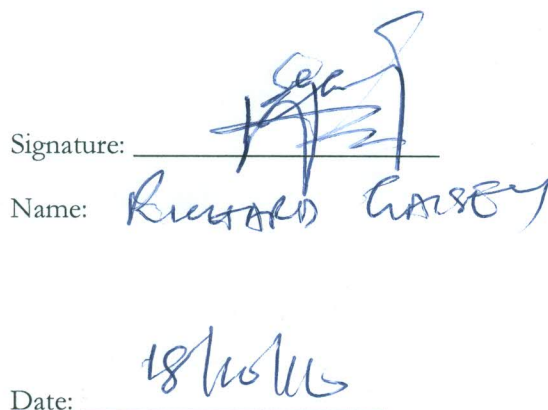 Signature:
Name: RICHARD
Date: 18/10/16